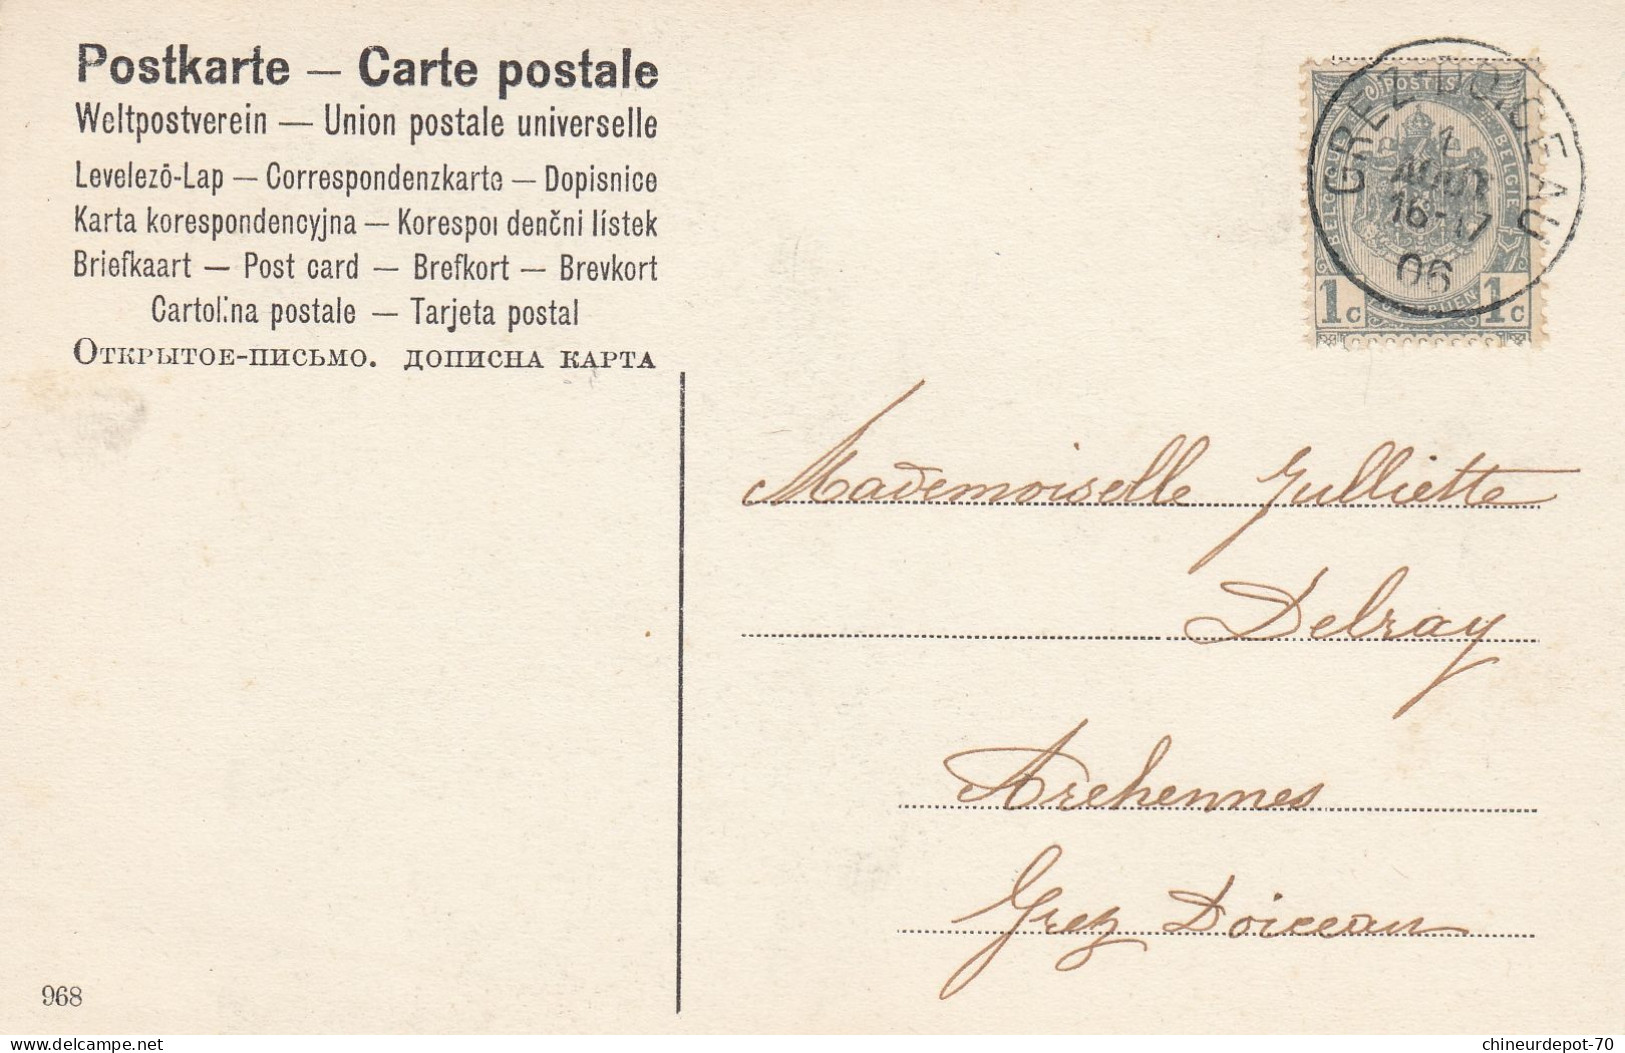 Postkarte — Carte postale
Weltpostverein — Union postale universelle
Levelező-Lap — Correspondenzkarte — Dopisnice
Karta korespondencyjna — Korespondenční lístek
Briefkaart — Post card — Brefkort — Brevkort
Cartolina postale — Tarjeta postal
Открытое-письмо. дописна карта
GREZ-DOICEAU
1
AOUT
16-17
06
POSTES
BELGIQUE
BELGIE
1c
1c
Mademoiselle Julliette
Delray
Archennes
Grez Doiceau
968
Delcampe.net
chineurdepot-70